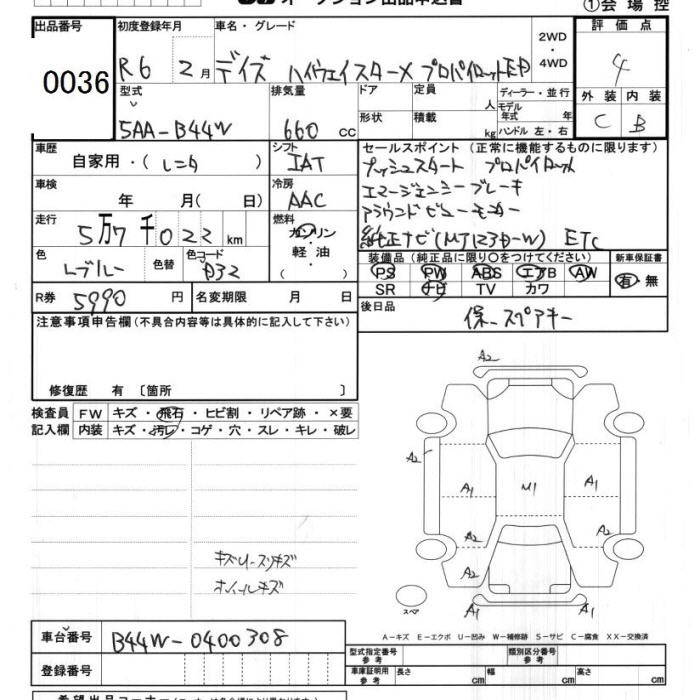 オークション出品申込書
①会場控
出品番号 0036
初度登録年月 R6 2月
車名・グレード デイズ ハイウェイスターX プロパイロットED
2WD・4WD
評価点 4
外装 C 内装 B
型式 5AA-B44W
排気量 660 cc
ドア 形状
定員 人 積載 kg
ディーラー・並行
モデル年式 年
ハンドル 左・右
車歴 自家用・(レンタ)
シフト IAT
セールスポイント(正常に機能するものに限ります)
プッシュスタート プロパイロット
エマージェンシーブレーキ
アラウンドビューモニター
純正ナビ(MJ123D-W) ETC
車検 年 月(日)
冷房 AAC
走行 5万7千022km
燃料 ガソリン・軽油
色 Lブルー 色替 色コード B32
装備品(純正品に限り○をつけてください)
PS PW ABS エアB AW
SR ナビ TV カワ
新車保証書 有・無
R券 5990円 名変期限 月 日
後日品 保-スペアキー
注意事項申告欄(不具合内容等は具体的に記入して下さい)
修復歴 有〔箇所 〕
検査員記入欄
FW キズ・飛石・ヒビ割・リペア跡・×要
内装 キズ・汚レ・コゲ・穴・スレ・キレ・破レ
キズU-スリキズ
ホイールキズ
A2
A2
A1
M1
A1
A2
A2
A2
A1
スペア
A-キズ E-エクボ U-凹み W-補修跡 S-サビ C-腐食 XX-交換済
車台番号 B44W-0400308
登録番号
型式指定番号 参考
類別区分番号 参考
車庫証明用 参考 長さ cm 幅 cm 高さ cm